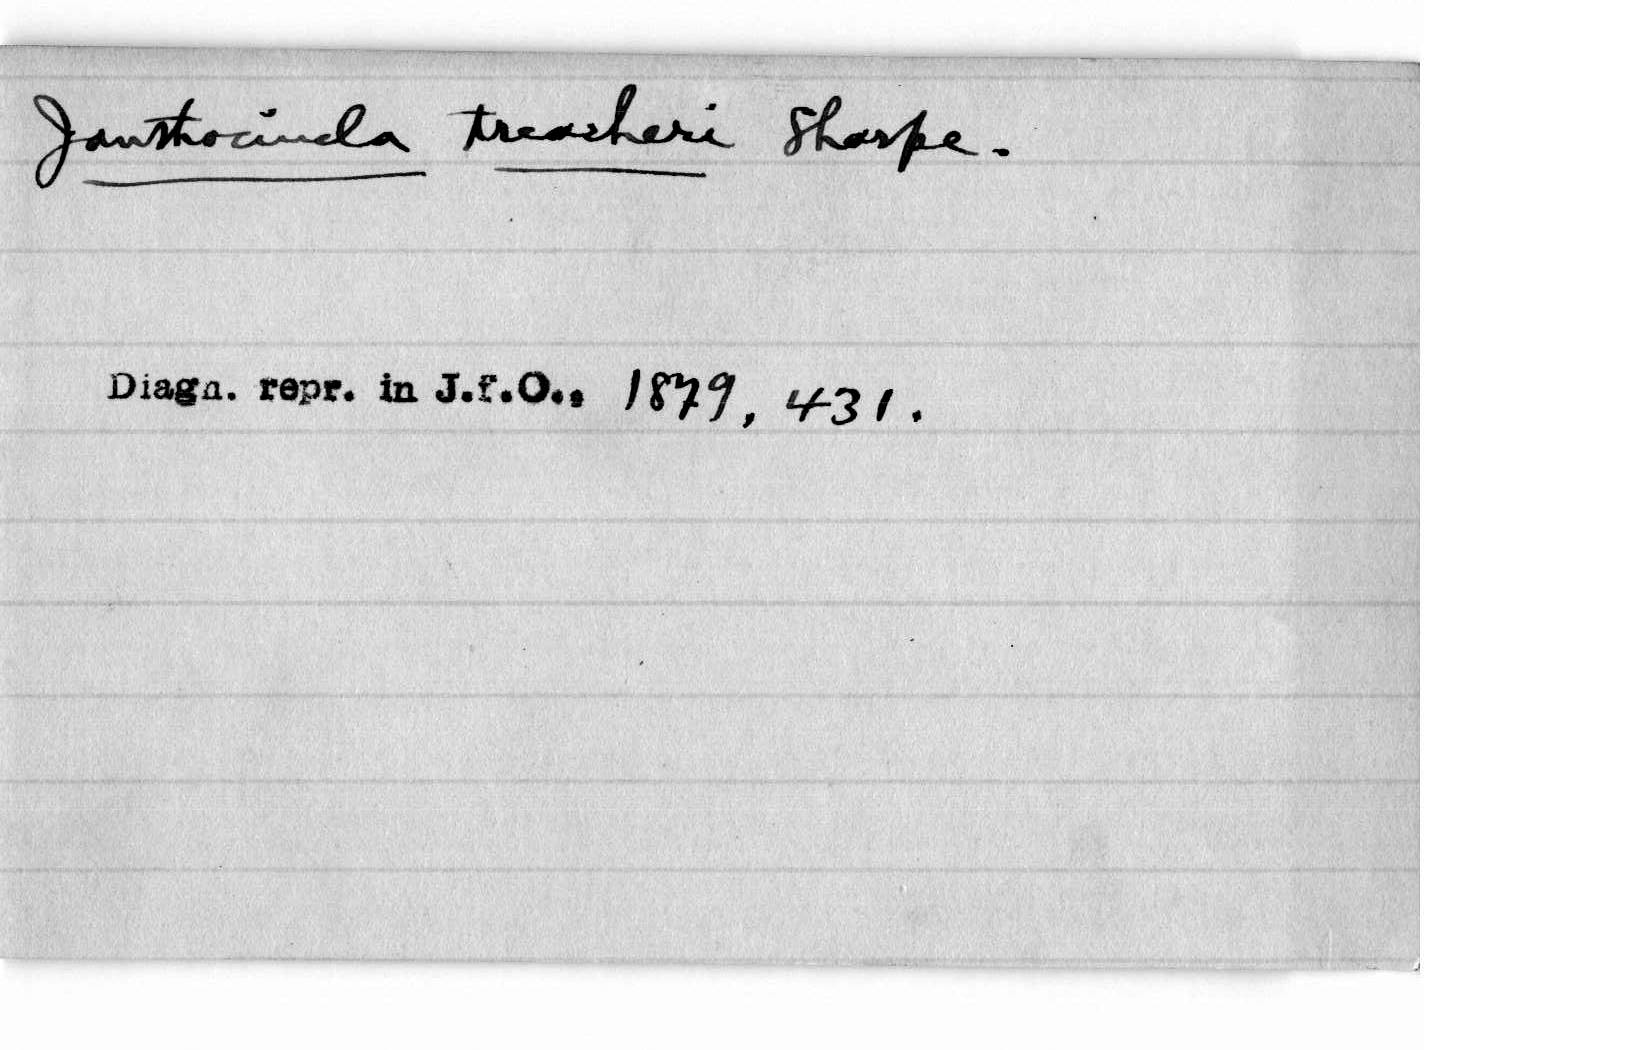 Janthocincla treacheri Sharpe.
Diagn. repr. in J.f.O., 1879, 431.